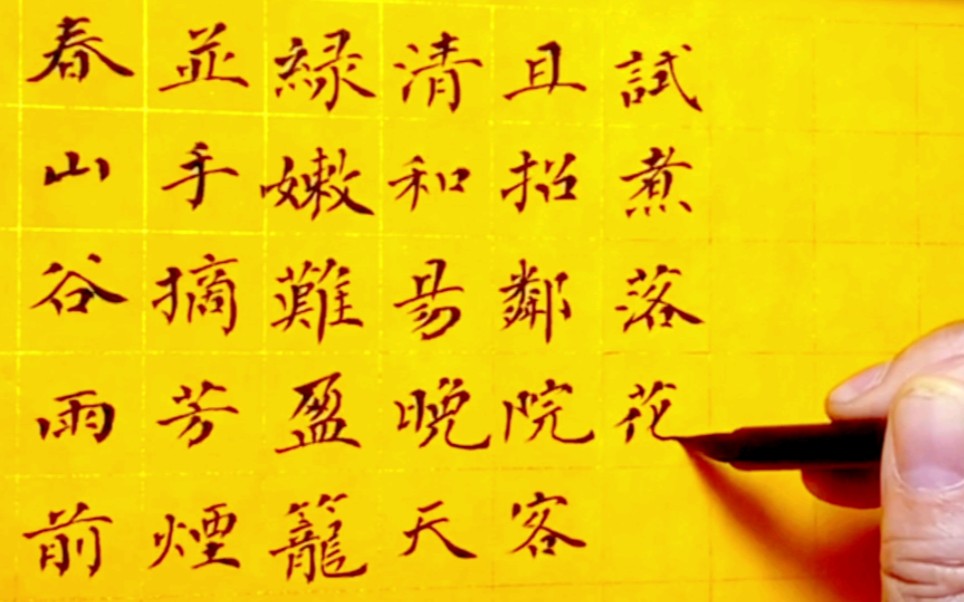 春山谷雨前
並手摘芳煙
緑嫩難盈籠
清和易晚天
且招鄰院客
試煮落花